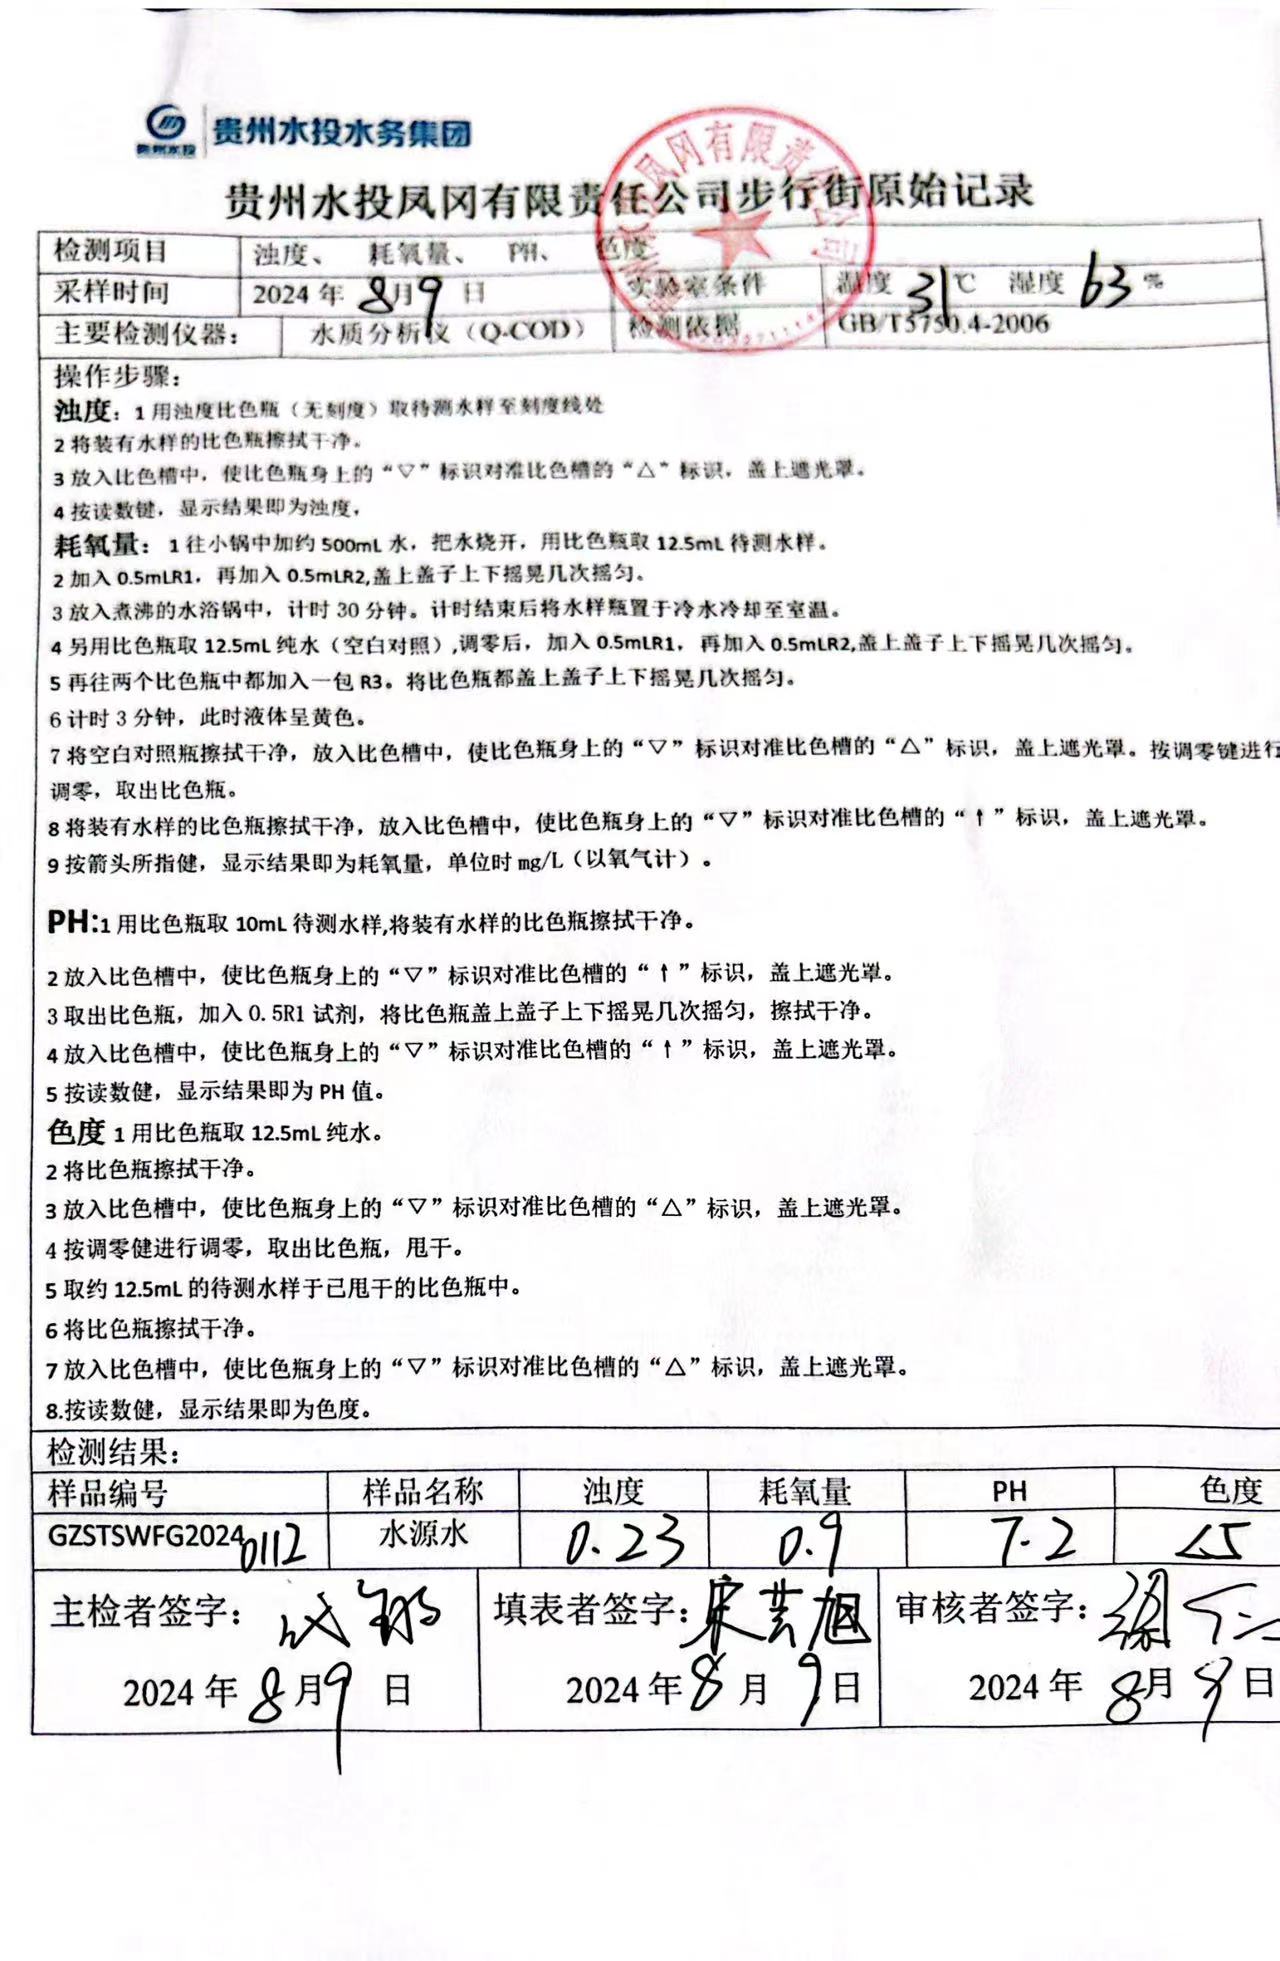 贵州水投
贵州水投水务集团
贵州水投凤冈有限责任公司步行街原始记录
检测项目 浊度、 耗氧量、 PH、 色度
采样时间 2024年8月9日 实验室条件 温度31℃ 湿度63%
主要检测仪器： 水质分析仪（Q-COD） 检测依据 GB/T5750.4-2006
操作步骤：
浊度：1用浊度比色瓶（无刻度）取待测水样至刻度线处
2将装有水样的比色瓶擦拭干净。
3放入比色槽中，使比色瓶身上的“▽”标识对准比色槽的“△”标识，盖上遮光罩。
4按读数键，显示结果即为浊度，
耗氧量：1往小锅中加约500mL水，把水烧开，用比色瓶取12.5mL待测水样。
2加入0.5mLR1，再加入0.5mLR2,盖上盖子上下摇晃几次摇匀。
3放入煮沸的水浴锅中，计时30分钟。计时结束后将水样瓶置于冷水冷却至室温。
4另用比色瓶取12.5mL纯水（空白对照）,调零后，加入0.5mLR1，再加入0.5mLR2,盖上盖子上下摇晃几次摇匀。
5再往两个比色瓶中都加入一包R3。将比色瓶都盖上盖子上下摇晃几次摇匀。
6计时3分钟，此时液体呈黄色。
7将空白对照瓶擦拭干净，放入比色槽中，使比色瓶身上的“▽”标识对准比色槽的“△”标识，盖上遮光罩。按调零键进行
调零，取出比色瓶。
8将装有水样的比色瓶擦拭干净，放入比色槽中，使比色瓶身上的“▽”标识对准比色槽的“↑”标识，盖上遮光罩。
9按箭头所指健，显示结果即为耗氧量，单位时mg/L（以氧气计）。
PH:1用比色瓶取10mL待测水样,将装有水样的比色瓶擦拭干净。
2放入比色槽中，使比色瓶身上的“▽”标识对准比色槽的“↑”标识，盖上遮光罩。
3取出比色瓶，加入0.5R1试剂，将比色瓶盖上盖子上下摇晃几次摇匀，擦拭干净。
4放入比色槽中，使比色瓶身上的“▽”标识对准比色槽的“↑”标识，盖上遮光罩。
5按读数健，显示结果即为PH值。
色度1用比色瓶取12.5mL纯水。
2将比色瓶擦拭干净。
3放入比色槽中，使比色瓶身上的“▽”标识对准比色槽的“△”标识，盖上遮光罩。
4按调零健进行调零，取出比色瓶，甩干。
5取约12.5mL的待测水样于已甩干的比色瓶中。
6将比色瓶擦拭干净。
7放入比色槽中，使比色瓶身上的“▽”标识对准比色槽的“△”标识，盖上遮光罩。
8.按读数健，显示结果即为色度。
检测结果：
样品编号 样品名称 浊度 耗氧量 PH 色度
GZSTSWFG20240112 水源水 0.23 0.9 7.2 <5
主检者签字： 填表者签字：宋芸旭 审核者签字：
2024年8月9日 2024年8月9日 2024年8月9日